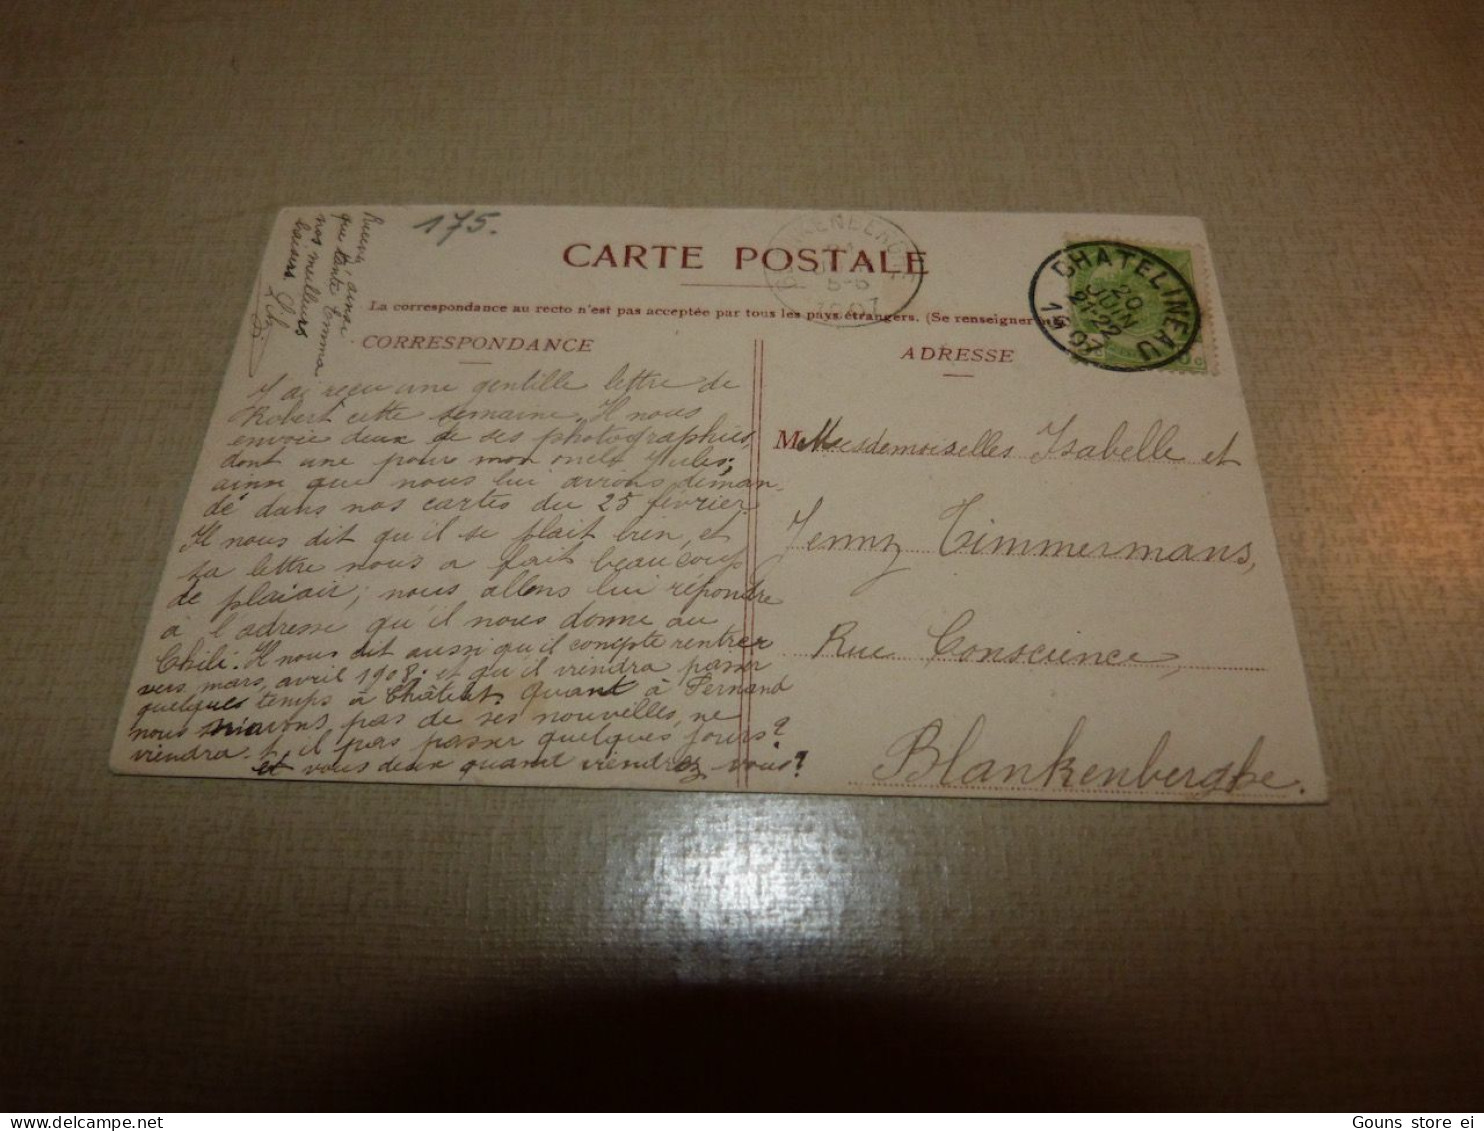 175.
CARTE POSTALE
La correspondance au recto n'est pas acceptée par tous les pays étrangers. (Se renseigner
CORRESPONDANCE
ADRESSE
CHATELINEAU
20
JUIN
21-22
1907
1907
ainsi
que tante Emma
nos meilleurs
baisers
J'ai reçu une gentille lettre de
Robert cette semaine. Il nous
envoie deux de ses photographies,
dont une pour mon oncle Jules,
ainsi que nous lui avions deman-
dé dans nos cartes du 25 février.
Il nous dit qu'il se plait bien, et
sa lettre nous a fait beaucoup
de plaisir; nous allons lui répondre
à l'adresse qu'il nous donne au
Chili. Il nous dit aussi qu'il compte rentrer
vers mars, avril 1908. et qu'il viendra passer
quelques temps à Châtelet. Quant à Fernand
nous n'avons pas de ses nouvelles, ne
viendra-t-il pas passer quelques jours?
et vous deux quand viendrez vous?
Mesdemoiselles Isabelle et
Jenny Timmermans,
Rue Conscience,
Blankenberghe.
Gouns store ei